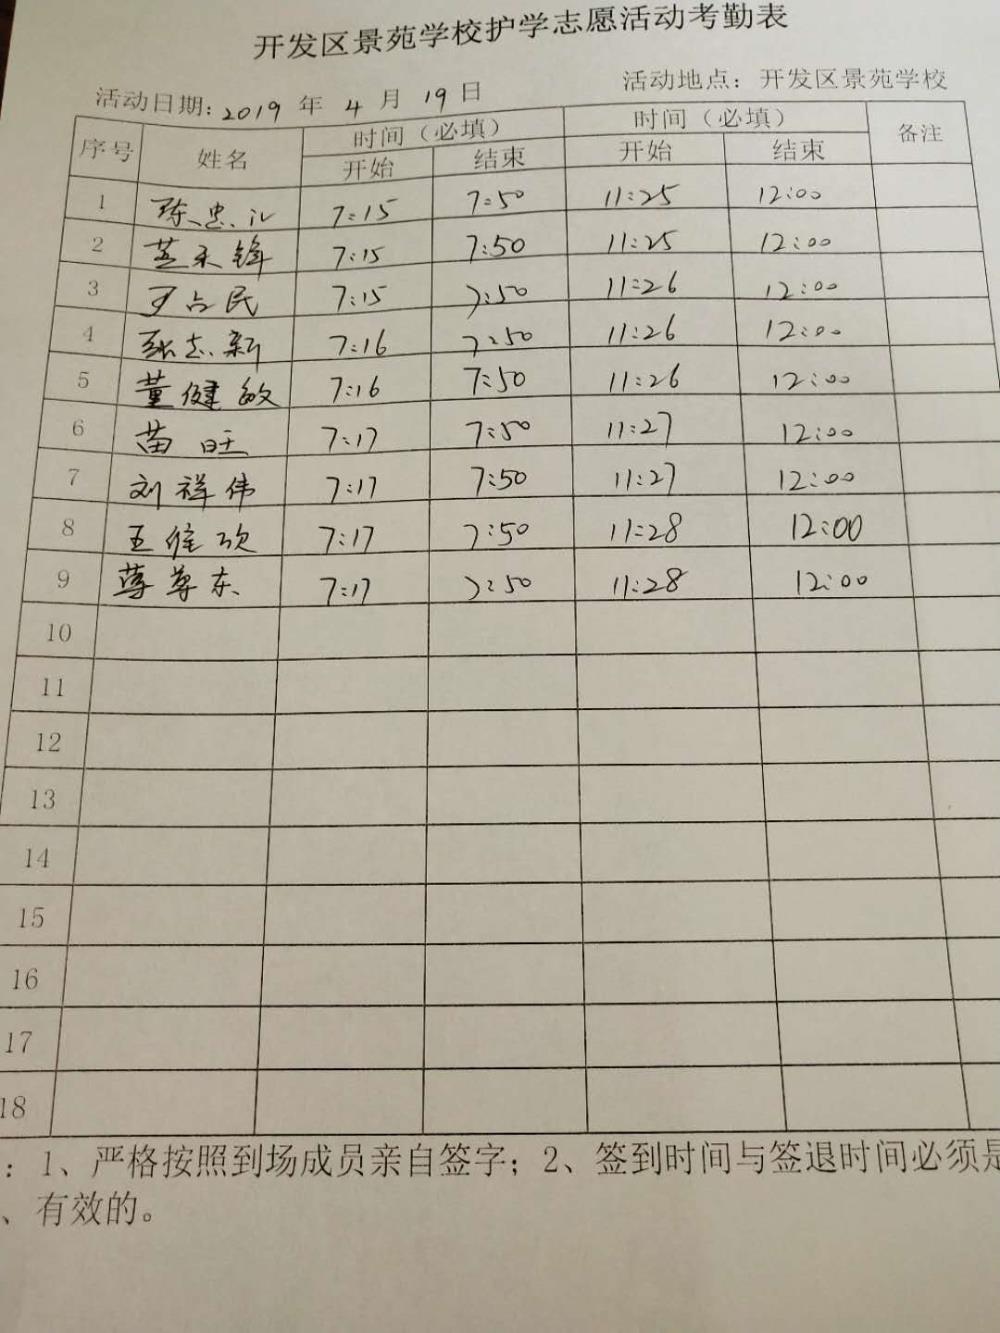 开发区景苑学校护学志愿活动考勤表
活动日期: 2019 年 4 月 19 日 活动地点: 开发区景苑学校
序号 姓名 时间（必填） 时间（必填） 备注
开始 结束 开始 结束
1 陈忠 7:15 7:50 11:25 12:00
2 锋 7:15 7:50 11:25 12:00
3 占民 7:15 7:50 11:26 12:00
4 张志新 7:16 7:50 11:26 12:00
5 董健敏 7:16 7:50 11:26 12:00
6 苗旺 7:17 7:50 11:27 12:00
7 刘祥伟 7:17 7:50 11:27 12:00
8 7:17 7:50 11:28 12:00
9 尊东 7:17 7:50 11:28 12:00
10
11
12
13
14
15
16
17
18
: 1、严格按照到场成员亲自签字; 2、签到时间与签退时间必须是
、有效的。